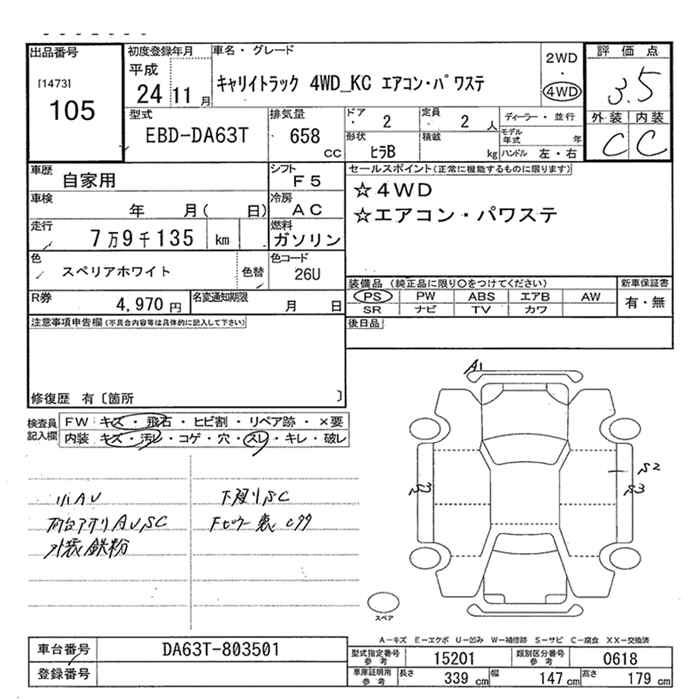 出品番号
[1473]
105
初度登録年月
平成
24 11 月
車名・グレード
キャリイトラック 4WD_KC エアコン・パワステ
2WD
・
4WD
評価点
3.5
外装 内装
C C
型式
EBD-DA63T
排気量
658
cc
ドア
・ 2
定員
2 人
ディーラー・並行
形状
ヒラB
積載
kg
モデル年式 年
ハンドル 左・右
車歴
自家用
シフト
F5
車検
年 月( 日)
冷房
AC
走行
7万9千135 km
燃料
ガソリン
色
スペリアホワイト
色替
色コード
26U
R券
4,970 円
名変通知期限
月 日
セールスポイント(正常に機能するものに限ります)
☆4WD
☆エアコン・パワステ
装備品(純正品に限り○をつけてください)
PS PW ABS エアB AW
SR ナビ TV カワ
新車保証書
有・無
後日品
注意事項申告欄(不具合内容等は具体的に記入して下さい)
修復歴 有〔箇所 〕
検査員
記入欄
FW キズ・飛石・ヒビ割・リペア跡・×要
内装 キズ・汚レ・コゲ・穴・スレ・キレ・破レ
小AU
荷台アオリAU,SC
外装鉄粉
下廻りSC
Fピラー裏
A1
S3
S2
S3
スペア
A－キズ E－エクボ U－凹み W－補修跡 S－サビ C－腐食 XX－交換済
車台番号
DA63T-803501
登録番号
型式指定番号
参考
15201
類別区分番号
参考
0618
車庫証明用
参考
長さ 339 cm 幅 147 cm 高さ 179 cm